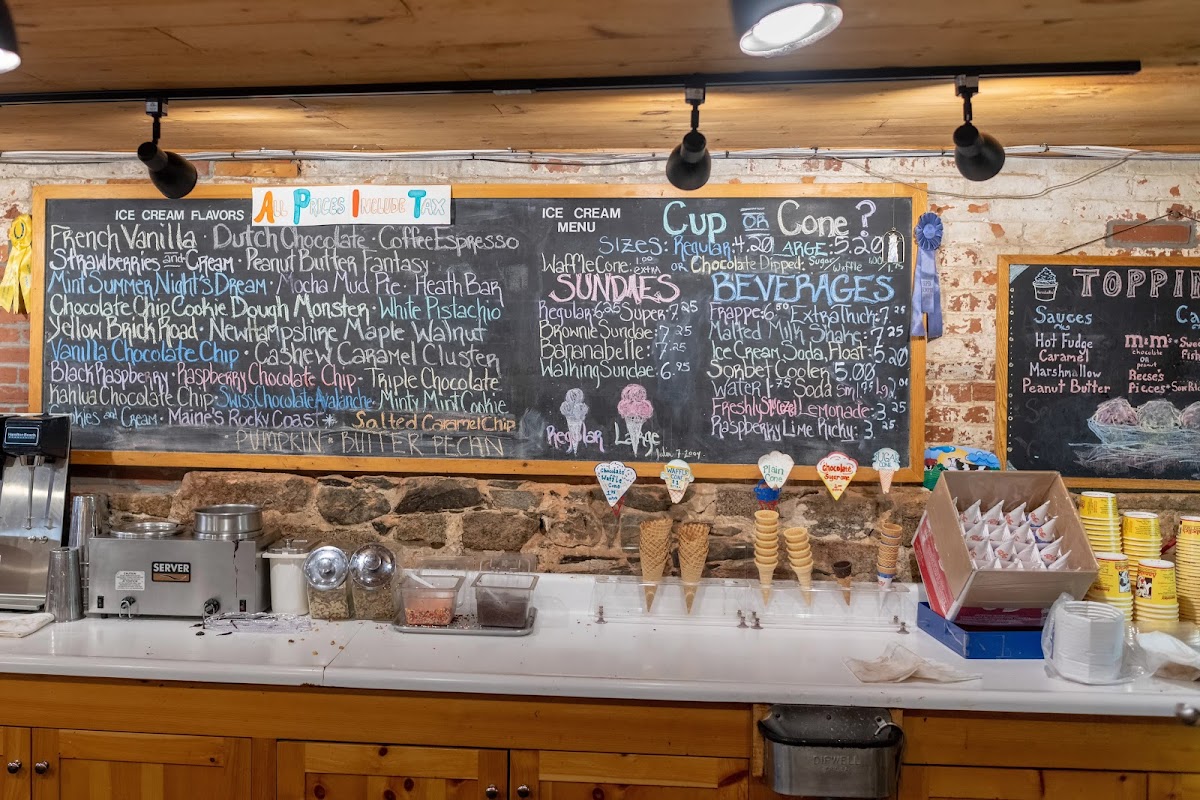 All Prices Include Tax
ICE CREAM FLAVORS
French Vanilla · Dutch Chocolate · Coffee Espresso
Strawberries and Cream · Peanut Butter Fantasy ·
Mint Summer Night's Dream · Mocha Mud Pie · Heath Bar
Chocolate Chip Cookie Dough Monster · White Pistachio
Yellow Brick Road · New Hampshire Maple Walnut
Vanilla Chocolate Chip · Cashew Caramel Cluster
Black Raspberry · Raspberry Chocolate Chip · Triple Chocolate
Kahlua Chocolate Chip · Swiss Chocolate Avalanche · Minty Mint Cookie
Cookies and Cream · Maine's Rocky Coast * Salted Caramel Chip
PUMPKIN · BUTTER PECAN
ICE CREAM
MENU
Cup OR Cone?
SIZES: Regular 4.20 LARGE: 5.20
Waffle Cone: 1.00 extra
OR Chocolate Dipped: Sugar Waffle 1.75
SUNDAES
Regular: 6.25 Super: 7.25
Brownie Sundae: 7.25
Bananabelle: 7.25
Walking Sundae: 6.95
Regular Large
BEVERAGES
Frappe: 6.50 Extra Thick: 7.25
Malted Milk Shake: 7.25
Ice Cream Soda, Float: 5.20
Sorbet Cooler 5.00
Water 1.75 Soda
Freshly Lemonade: 3.25
Raspberry Lime Ricky: 3.25
TOPPIN
Sauces
Hot Fudge
Caramel
Marshmallow
Peanut Butter
Ca
m&m's
chocolate
OR
peanut
Reese's
Pieces
Chocolate
Waffle
Cone
WAFFLE
CONE
$1
Plain
Cone
chocolate
Sugar cone
SUGAR
CONE
SERVER
DIPWELL